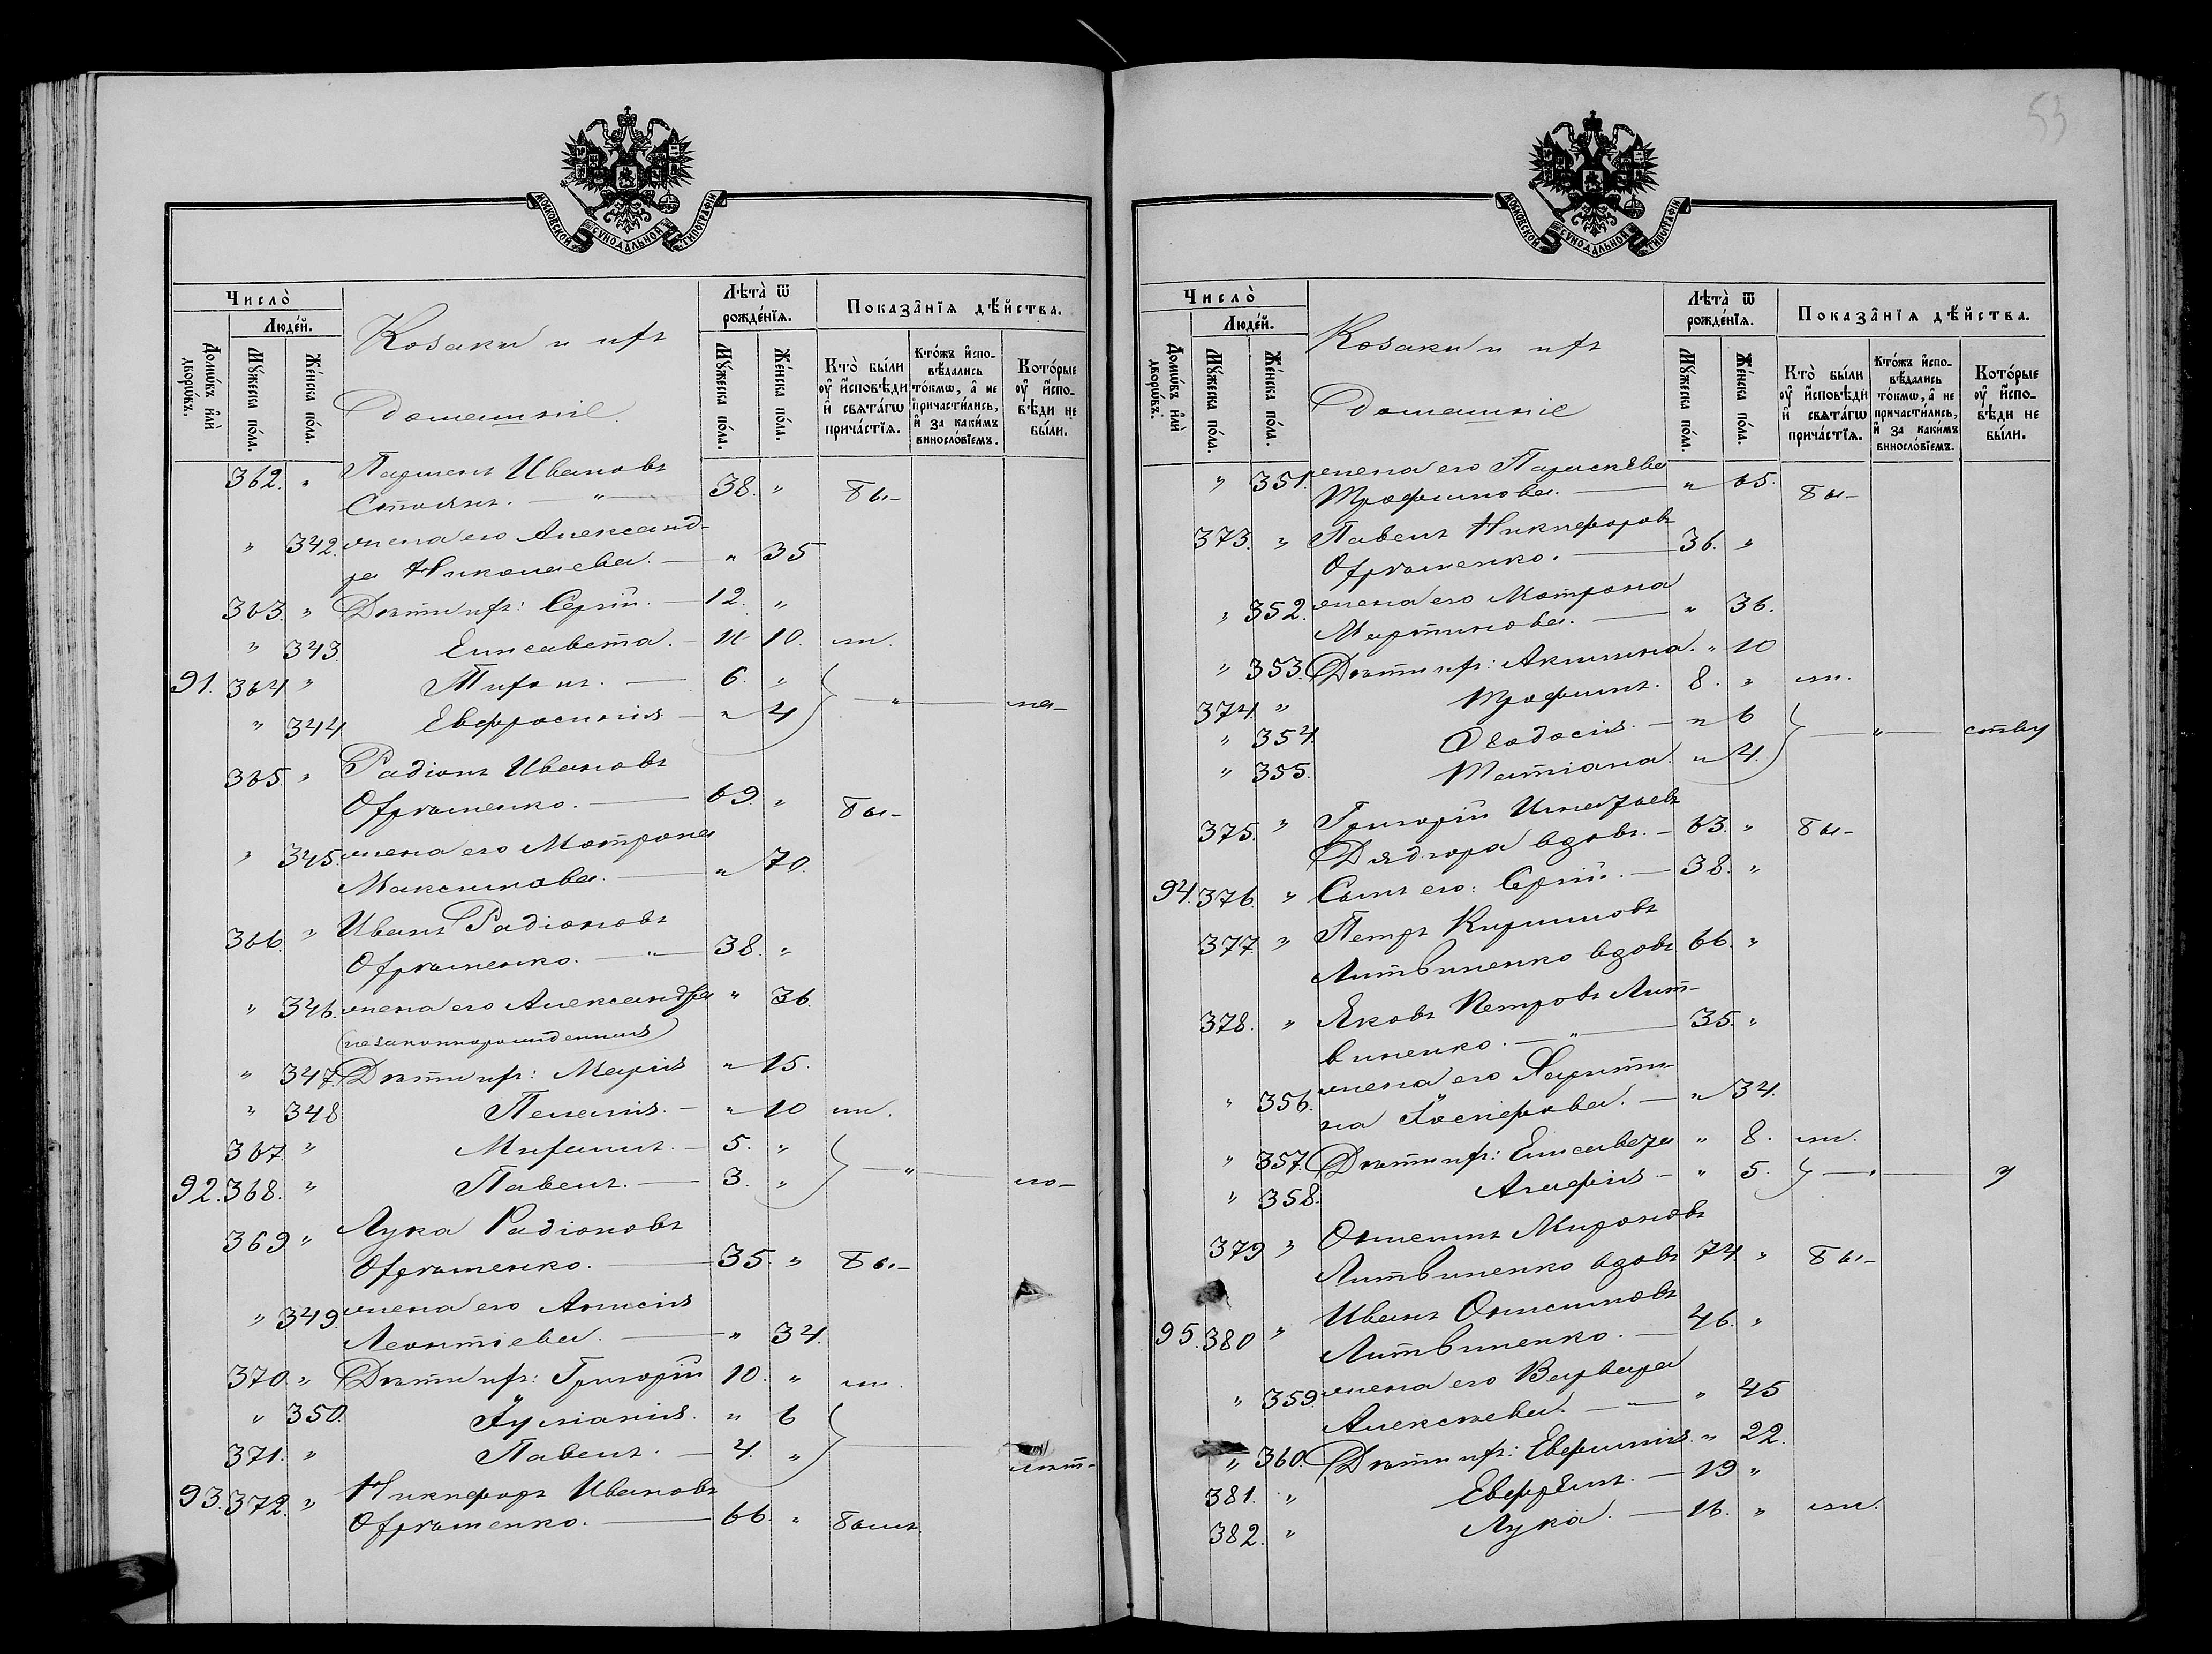 МОСКОВСКОЙ СѴНОДАЛЬНОЙ ТИПОГРАФІИ
Число̀
Людéй.
Домѡ́въ и҆лѝ дворѡ́въ.
Мꙋ́жеска по́ла.
Же́нска по́ла.
Козаки и ихъ
домашніе
Лѣта̀ ѿ рожде́нїѧ.
Мꙋ́жеска по́ла.
Же́нска по́ла.
Показа̑нїѧ дѣ́йства.
Кто̀ бы́ли ᲂу҆ и҆сповѣ́ди и҆ свѧта́гѡ прича́стїѧ.
Кто́жъ и҆спо-вѣ́дались то́кмѡ, а҆ не причасти́лись, и҆ за каки́мъ винослóвїемъ.
Кото́рые ᲂу҆ и҆спо-вѣ́ди не бы́ли.
362. " Парменъ Ивановъ
Стоянъ. — " — 38. " бы-
" 342. жена его Александ-
ра Николаева. — " 35
363. " Дѣти ихъ: Сергій. — 12. "
" 343. Елисавета. — " 10. ли.
91. 364 " Тихонъ. — 6. "
" 344 Евфросинія — " 4 — " — ма-
365. " Радіонъ Ивановъ
Охрѣменко. — 69. " бы-
" 345. жена его Матрона
Максимова. — " 70.
366. " Иванъ Радіоновъ
Охрѣменко. — " — 38. "
" 346. жена его Александра " 36.
(незаконнорожденная)
" 347. Дѣти ихъ: Марія " 15.
" 348 Пелагія. — " 10 ли.
367. " Михаилъ. — 5. "
92. 368. " Павелъ. — 3. " — " — ло-
369 " Лука Радіоновъ
Охрѣменко. — 35. " бы-
" 349. жена его Анисія
Леонтіева. — " 34.
370. " Дѣти ихъ: Григорій 10. " ли.
" 350. Іуліанія. " 6
371. " Павелъ. — 4. " — лѣт-
93. 372. " Никифоръ Ивановъ
Охрѣменко. — 66. " былъ
53
МОСКОВСКОЙ СѴНОДАЛЬНОЙ ТИПОГРАФІИ
Число̀
Людéй.
Домѡ́въ и҆лѝ дворѡ́въ.
Мꙋ́жеска по́ла.
Же́нска по́ла.
Козаки и ихъ
домашніе
Лѣта̀ ѿ рожде́нїѧ.
Мꙋ́жеска по́ла.
Же́нска по́ла.
Показа̑нїѧ дѣ́йства.
Кто̀ бы́ли ᲂу҆ и҆сповѣ́ди и҆ свѧта́гѡ прича́стїѧ.
Кто́жъ и҆спо-вѣ́дались то́кмѡ, а҆ не причасти́лись, и҆ за каки́мъ винослóвїемъ.
Кото́рые ᲂу҆ и҆спо-вѣ́ди не бы́ли.
" 351. жена его Параскѣва
Трофимова. — " 65. бы-
373. " Павелъ Никифоровъ
Охрѣменко. — 36. "
" 352. жена его Матрона
Мартинова. — " 36.
" 353. Дѣти ихъ: Акилина. " 10
374. " Трофимъ. 8. " ли.
" 354. Ѳеодосія. — " 6
" 355. Татіана. " 4. — " — ству
375. " Григорій Игнатовъ
Дядюра вдовъ. — 63. " бы-
94. 376. " Сынъ его: Сергій. — 38. "
377. " Петръ Кириловъ
Литвиненко вдовъ 66. "
378. " Яковъ Петровъ Лит-
виненко. — " — 35. "
" 356. жена его Харити-
на Іосифова. — " 34.
" 357. Дѣти ихъ: Елисавета " 8. ли.
" 358. Агафія — " 5. — " — у
379 " Онисимъ Мироновъ
Литвиненко вдовъ 74. " бы-
95. 380 " Иванъ Онисимовъ
Литвиненко. — 46. "
" 359. жена его Варвара
Алексѣева. — " — " 45
" 360. Дѣти ихъ: Евфимія. " 22.
381. " Евфремъ. — 19 "
382. " Лука. — 16. " ли.